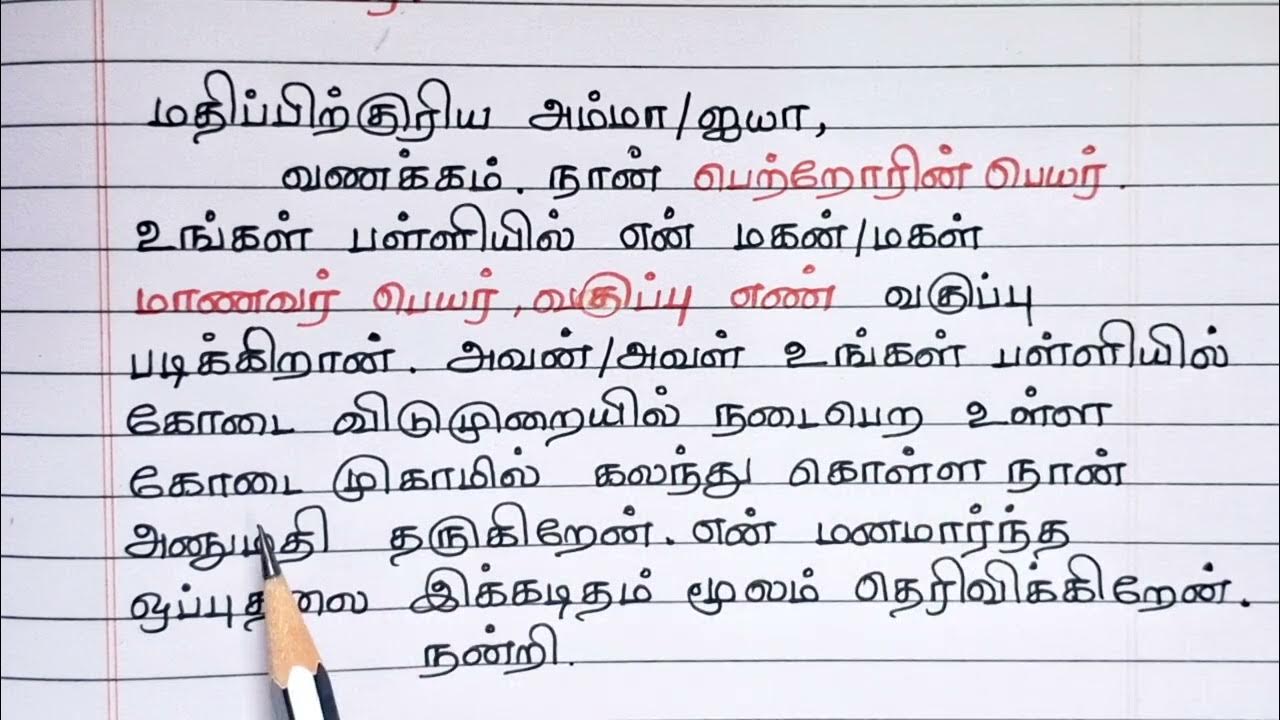 மதிப்பிற்குரிய அம்மா/ஐயா,
வணக்கம். நான் பெற்றோரின் பெயர்.
உங்கள் பள்ளியில் என் மகன்/மகள்
மாணவர் பெயர், வகுப்பு எண் வகுப்பு
படிக்கிறான். அவன்/அவள் உங்கள் பள்ளியில்
கோடை விடுமுறையில் நடைபெற உள்ள
கோடை முகாமில் கலந்து கொள்ள நான்
அனுமதி தருகிறேன். என் மனமார்ந்த
ஒப்புதலை இக்கடிதம் மூலம் தெரிவிக்கிறேன்.
நன்றி.